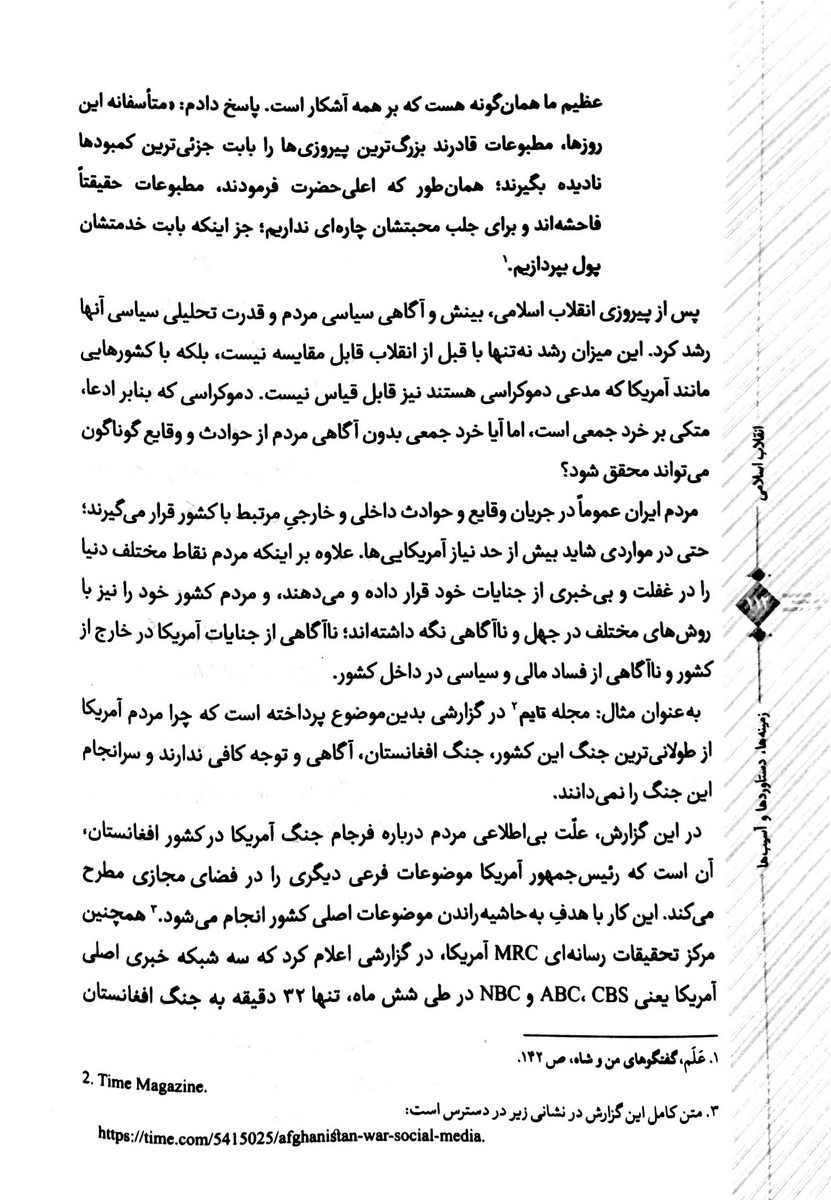 عظیم ما همان‌گونه هست که بر همه آشکار است. پاسخ دادم: «متأسفانه این
روزها، مطبوعات قادرند بزرگ‌ترین پیروزی‌ها را بابت جزئی‌ترین کمبودها
نادیده بگیرند؛ همان‌طور که اعلی‌حضرت فرمودند، مطبوعات حقیقتاً
فاحشه‌اند و برای جلب محبتشان چاره‌ای نداریم؛ جز اینکه بابت خدمتشان
پول بپردازیم.۱
پس از پیروزی انقلاب اسلامی، بینش و آگاهی سیاسی مردم و قدرت تحلیلی سیاسی آنها
رشد کرد. این میزان رشد نه‌تنها با قبل از انقلاب قابل مقایسه نیست، بلکه با کشورهایی
مانند آمریکا که مدعی دموکراسی هستند نیز قابل قیاس نیست. دموکراسی که بنابر ادعا،
متکی بر خرد جمعی است، اما آیا خرد جمعی بدون آگاهی مردم از حوادث و وقایع گوناگون
می‌تواند محقق شود؟
مردم ایران عموماً در جریان وقایع و حوادث داخلی و خارجیِ مرتبط با کشور قرار می‌گیرند؛
حتی در مواردی شاید بیش از حد نیاز آمریکایی‌ها. علاوه بر اینکه مردم نقاط مختلف دنیا
را در غفلت و بی‌خبری از جنایات خود قرار داده و می‌دهند، و مردم کشور خود را نیز با
روش‌های مختلف در جهل و ناآگاهی نگه داشته‌اند؛ ناآگاهی از جنایات آمریکا در خارج از
کشور و ناآگاهی از فساد مالی و سیاسی در داخل کشور.
به‌عنوان مثال: مجله تایم۲ در گزارشی بدین‌موضوع پرداخته است که چرا مردم آمریکا
از طولانی‌ترین جنگ این کشور، جنگ افغانستان، آگاهی و توجه کافی ندارند و سرانجام
این جنگ را نمی‌دانند.
در این گزارش، علّت بی‌اطلاعی مردم درباره فرجام جنگ آمریکا در کشور افغانستان،
آن است که رئیس‌جمهور آمریکا موضوعات فرعی دیگری را در فضای مجازی مطرح
می‌کند. این کار با هدفِ به‌حاشیه‌راندن موضوعات اصلی کشور انجام می‌شود.۳ همچنین
مرکز تحقیقات رسانه‌ای MRC آمریکا، در گزارشی اعلام کرد که سه شبکه خبری اصلی
آمریکا یعنی ABC، CBS و NBC در طی شش ماه، تنها ۳۲ دقیقه به جنگ افغانستان
۱. عَلَم، گفتگوهای من و شاه، ص ۱۴۲.
2. Time Magazine.
۳. متن کامل این گزارش در نشانی زیر در دسترس است:
https://time.com/5415025/afghanistan-war-social-media.
انقلاب اسلامی
۱۱۲
زمینه‌ها، دستاوردها و آسیب‌ها